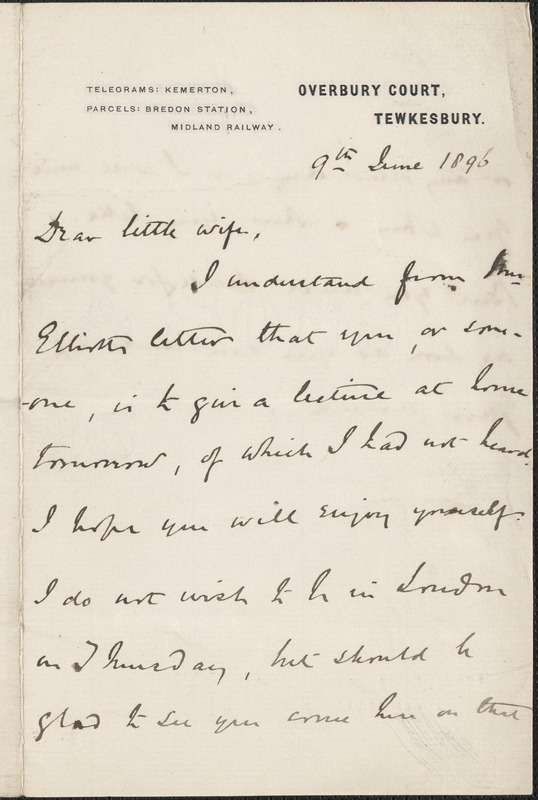 TELEGRAMS: KEMERTON,
PARCELS: BREDON STATION,
MIDLAND RAILWAY.
OVERBURY COURT,
TEWKESBURY.
9th June 1896
Dear little wife,
I understand from Mrs
Elliott's letter that you, or some-
-one, is to give a lecture at home
tomorrow, of which I had not heard.
I hope you will enjoy yourself.
I do not wish to be in London
on Thursday, but should be
glad to see you come here on that